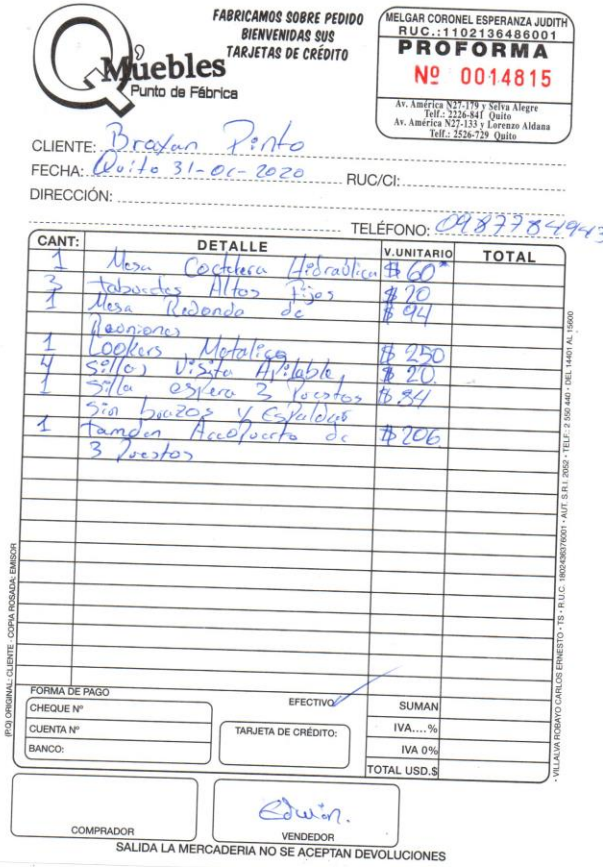 Q Muebles
Punto de Fábrica
FABRICAMOS SOBRE PEDIDO
BIENVENIDAS SUS
TARJETAS DE CRÉDITO
MELGAR CORONEL ESPERANZA JUDITH
RUC.:1102136486001
PROFORMA
Nº 0014815
Av. América N27-179 y Selva Alegre
Telf.: 2226-841 Quito
Av. América N27-133 y Lorenzo Aldana
Telf.: 2526-729 Quito
CLIENTE: Brayan Pinto
FECHA: Quito 31-01-2020 RUC/CI:
DIRECCIÓN:
TELÉFONO: 0987784943
CANT: DETALLE V.UNITARIO TOTAL
1 Mesa Coctelera Hidraúlica $ 60
3 taburetes Altos Fijos $ 20
1 Mesa Redonda de $ 94
Reuniones
1 Lookers Metalico $ 250
4 Sillas Visita Apilable $ 20
1 Silla espera 3 Puestos $ 84
Sin brazos y Espaldar
1 tamden Aeropuerto de $ 206
3 Puestos
FORMA DE PAGO
CHEQUE Nº
CUENTA Nº
BANCO:
EFECTIVO
TARJETA DE CRÉDITO:
SUMAN
IVA....%
IVA 0%
TOTAL USD.$
COMPRADOR
Edwin.
VENDEDOR
SALIDA LA MERCADERIA NO SE ACEPTAN DEVOLUCIONES
(P.Q) ORIGINAL: CLIENTE - COPIA ROSADA: EMISOR
• VILLALVA ROBAYO CARLOS ERNESTO • TS • R.U.C. 1802436376001 • AUT. S.R.I. 2052 • TELF.: 2 550 440 • DEL 14401 AL 15600